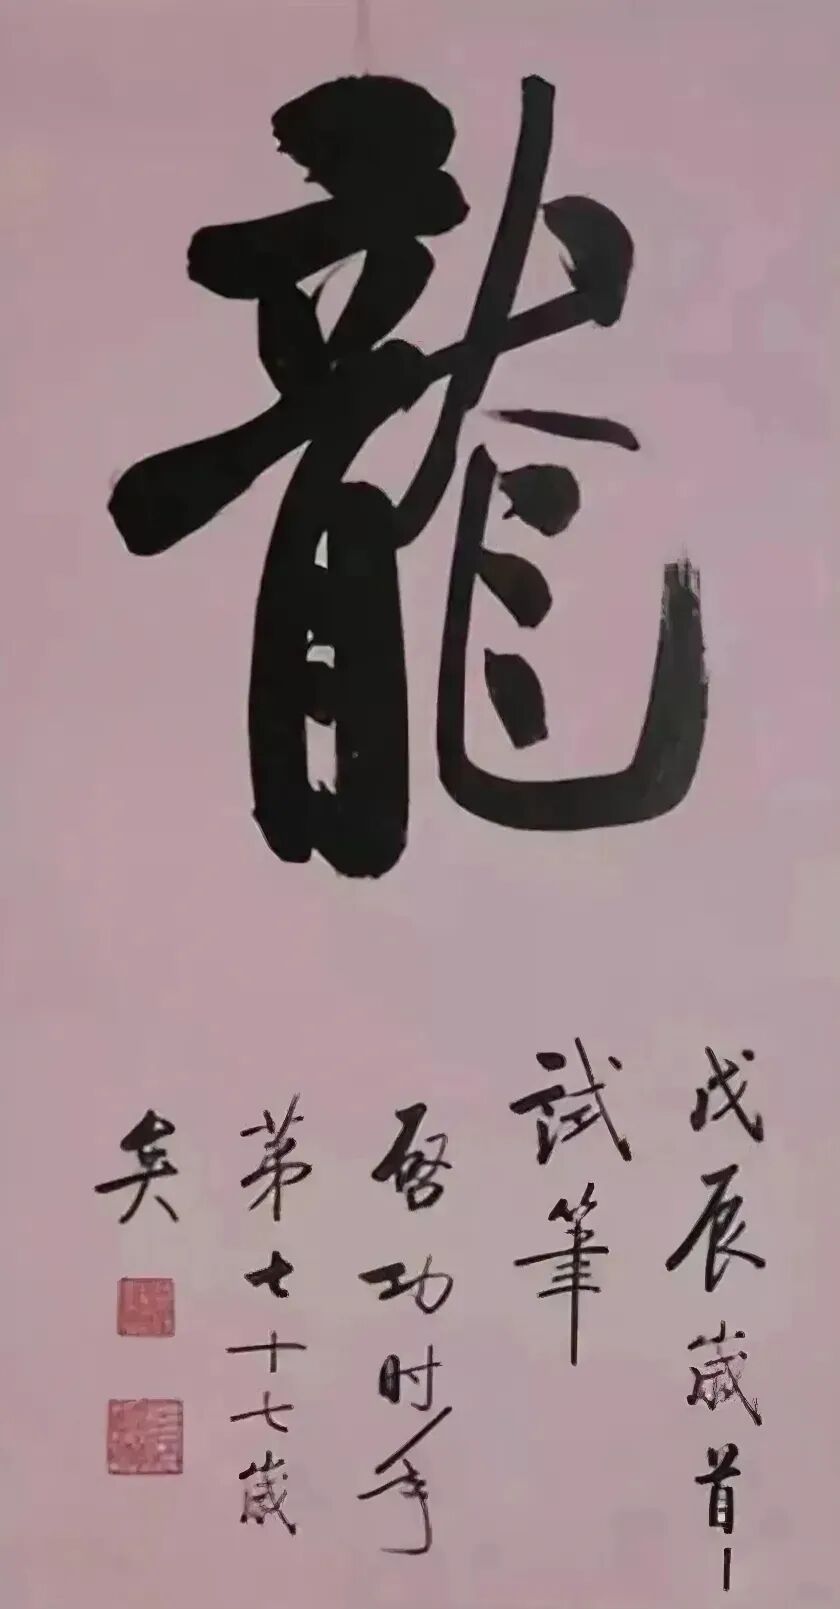 龍
戊辰歲首
試筆
啓功时年
苐七十七歲
矣